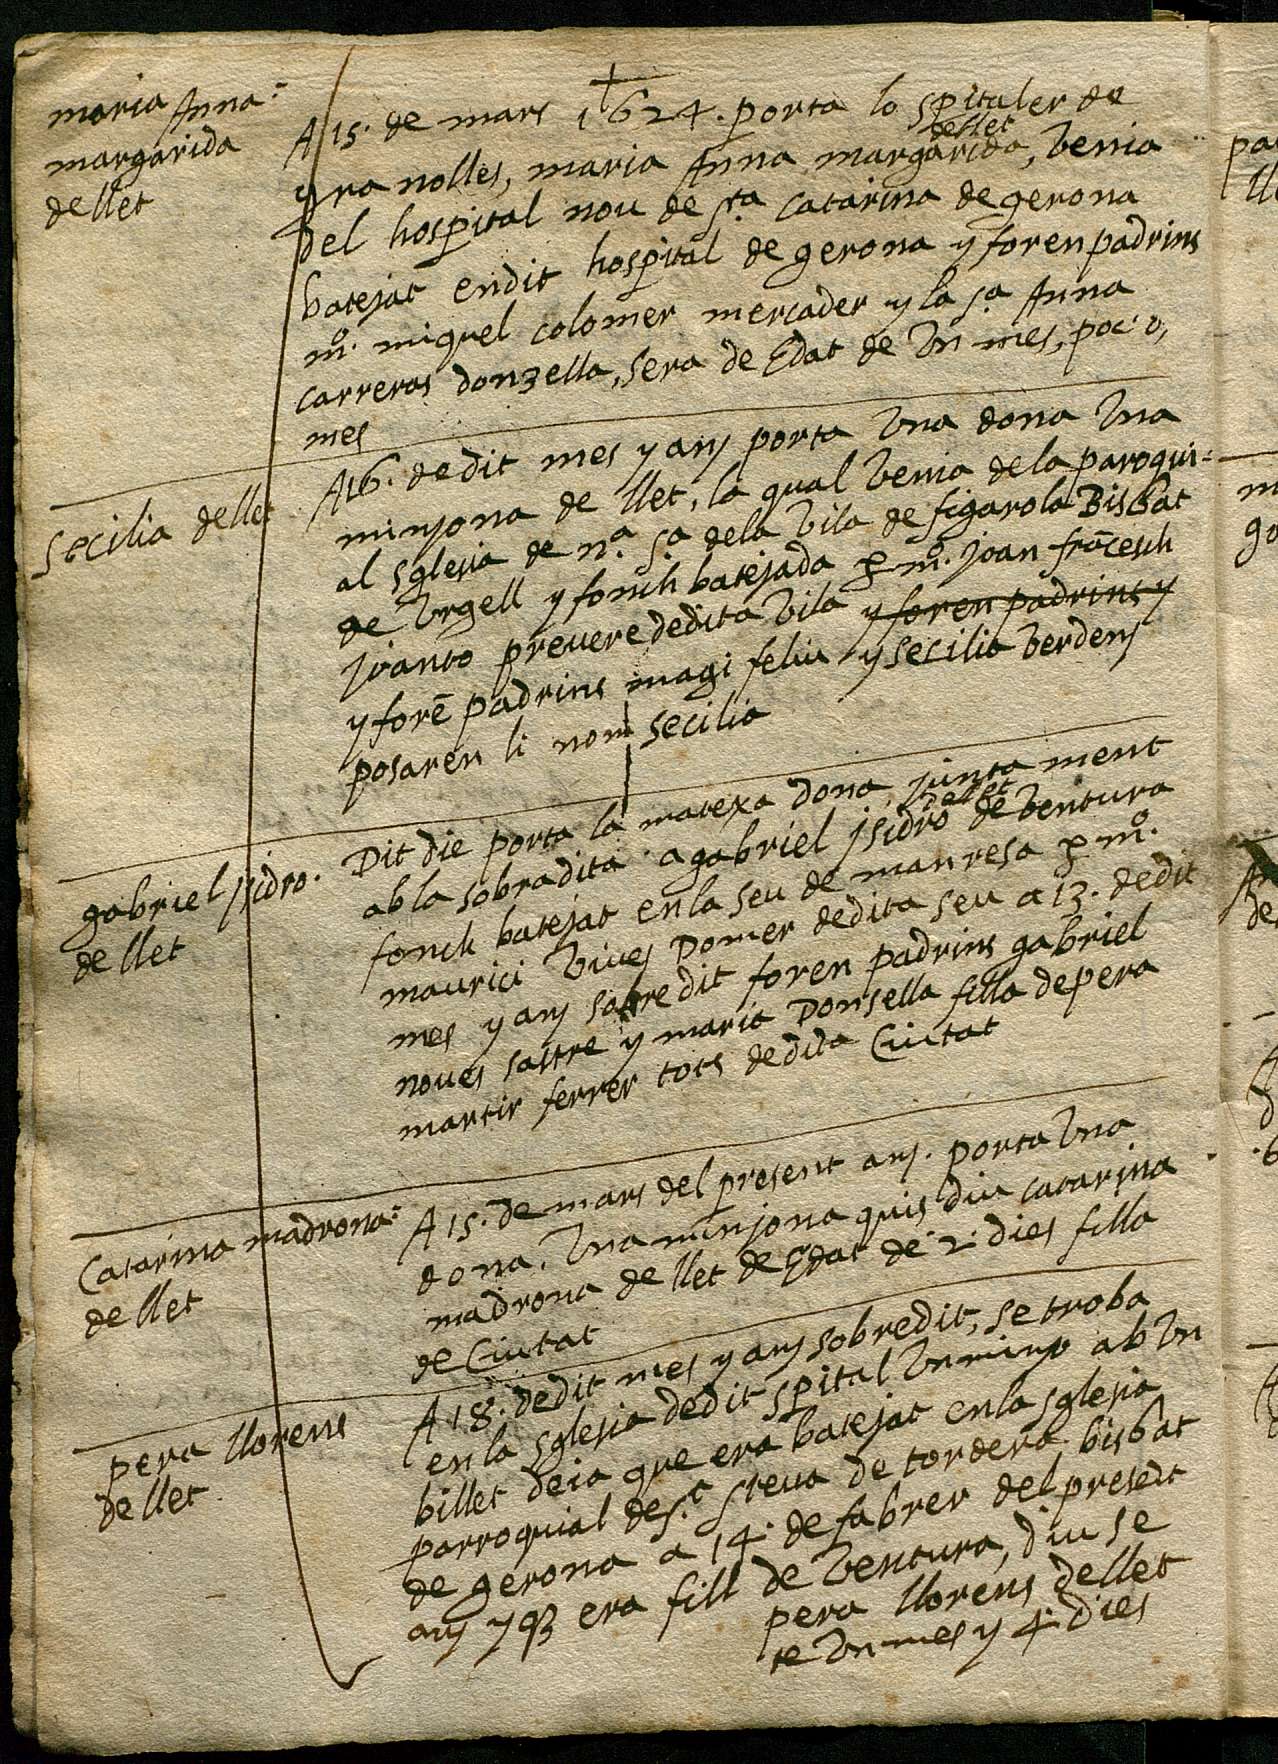 maria Anna=
margarida
de llet
A 15. de mars 1624. porta lo spitaler de
granolles, maria Anna margarida, venia
de llet
del hospital nou de sta catarina de gerona
batejat en dit hospital de gerona y foren padrins
mo. miquel colomer mercader y la sa. Anna
carreras donzella, sera de Edat de un mes, poc o,
mes
Secilia de llet
A 16. de dit mes y any porta una dona una
minyona de llet, la qual venia de la paroqui=
al sglesia de na. sa. dela vila de figarola Bisbat
de Urgell y fonch batejada p mo. joan francesch
prevere dedita vila y foren padrins y
y forē padrins magi feliu y Secilia verdeny
posaren li nom Secilia
gabriel jsidro.
de llet
Dit die porta la matexa dona juntament
ab la sobradita a gabriel jsidro de ventura
de llet
fonch batejat en la seu de manresa p mo.
maurici vives Domer dedita seu a 13. de dit
mes y any sobre dit foren padrins gabriel
noves sastre y maria Donsella filla de pera
martir ferrer tots dedita Ciutat
Catarina madrona=
de llet
A 15. de mars del present any. porta una
dona. una minyona quis diu catarina
madrona de llet de Edat de 2. dies filla
de Ciutat
pera llorens
de llet
A 18. de dit mes y any sobredit, se troba
en la sglesia dedit spital un minyo ab un
billet deia que era batejat en la sglesia
parroquial de st. steva de tordera bisbat
de gerona a 14. de fabrer del present
any y q̄ era fill de ventura, diu se
pera llorens de llet
te un mes y 4. dies